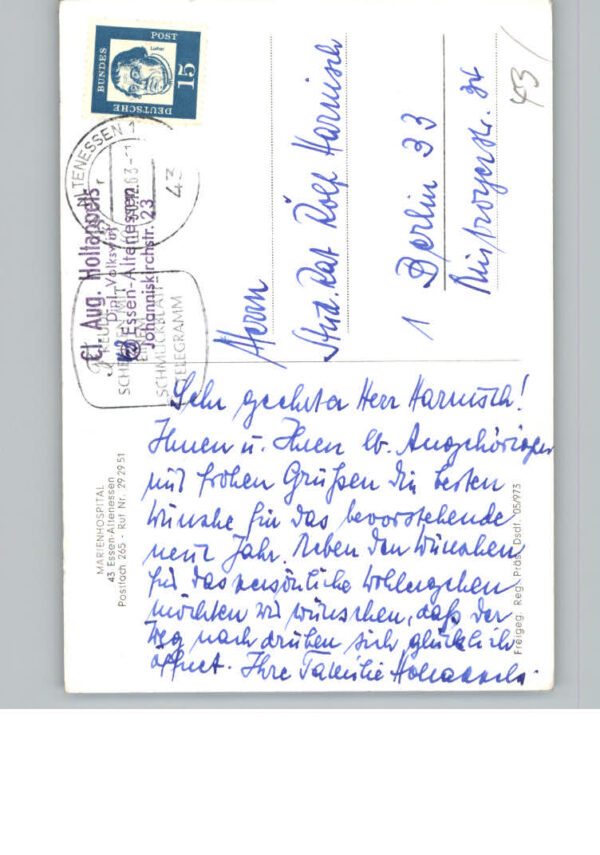 DEUTSCHE
BUNDES
POST
Luther
15
ALTENESSEN 1
63-1
43
Cl. Aug. Holtappels
Dipl. Volkswirt
Essen-Altenessen
Johanniskirchstr. 23
SCHMUCKBLATT-
TELEGRAMM
43
Herrn
Stud. Rat Rolf Harnisch
1 Berlin 33
str. 34
Sehr geehrter Herr Harnisch!
Ihnen u. Ihren lb. Angehörigen
mit frohen Grüßen die besten
Wünsche für das bevorstehende
neue Jahr. Neben den Wünschen
für das persönliche Wohlergehen
möchten wir wünschen, daß der
Weg nach drüben sich glücklich
öffnet. Ihre Familie Holtappels.
MARIENHOSPITAL
43 Essen-Altenessen
Postfach 265 - Ruf Nr. 29 29 51
Freigeg. Reg. Präs. Dsdf. 05/973